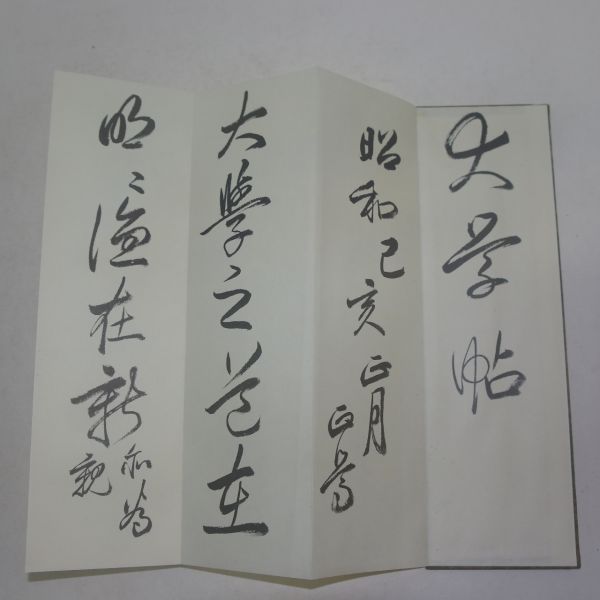 大学帖
昭和己亥正月
正篤
大學之道在
明〻德在新
亦為
親